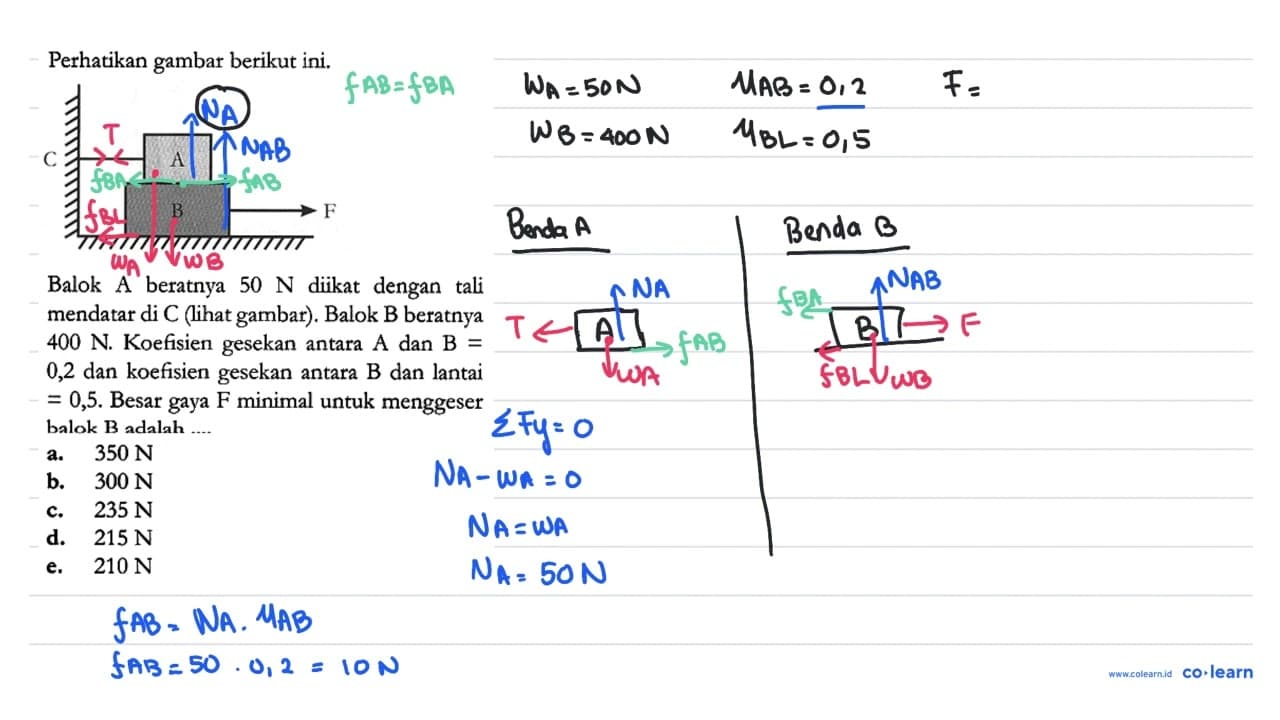 Perhatikan gambar berikut ini.
fAB = fBA
NA
T
NAB
C
A
fBA
fAB
fBL
B
F
WA
WB
Balok A beratnya 50 N diikat dengan tali
mendatar di C (lihat gambar). Balok B beratnya
400 N. Koefisien gesekan antara A dan B =
0,2 dan koefisien gesekan antara B dan lantai
= 0,5. Besar gaya F minimal untuk menggeser
balok B adalah ....
a. 350 N
b. 300 N
c. 235 N
d. 215 N
e. 210 N
fAB = NA . μAB
fAB = 50 . 0,2 = 10 N
WA = 50 N
μAB = 0,2
F =
WB = 400 N
μBL = 0,5
Benda A
NA
T
A
fAB
WA
ΣFy = 0
NA - WA = 0
NA = WA
NA = 50 N
Benda B
NAB
fBA
B
F
fBL
WB
www.colearn.id co·learn